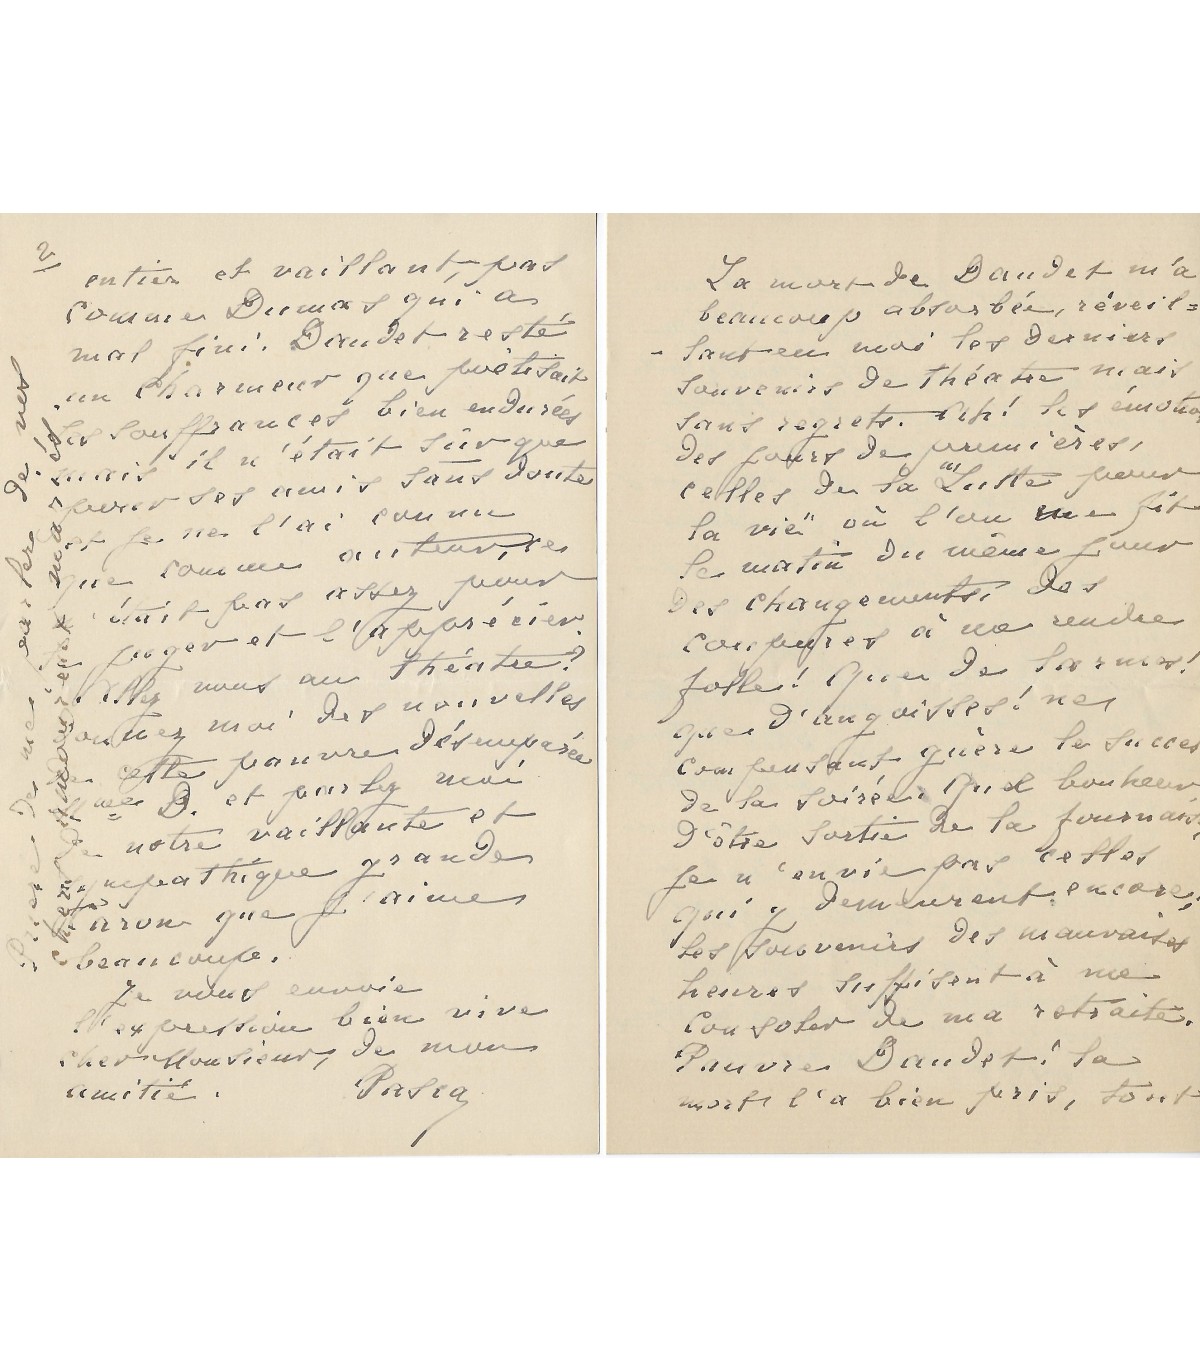 La mort de Daudet m'a
beaucoup absorbée, réveil=
lant en moi les derniers
souvenirs de théatre mais
sans regrets. Ah! les émotions
des jours de premières,
celles de la "Lutte pour
la vie" où l'on me fit
le matin du même jour
des changements, des
coupures à me rendre
folle! Que de larmes!
que d'angoisses! ne
compensant guère le succès
de la soirée. Quel bonheur
d'être sortie de la fournaise,
je n'envie pas celles
qui y demeurent encore,
les souvenirs des mauvaises
heures suffisent à me
consoler de ma retraite.
Pauvre Daudet! la
mort l'a bien pris, tout
2/
entier et vaillant, pas
comme Dumas qui a
mal fini. Daudet resté
un charmeur que poëtisait
les souffrances bien endurées
mais il n'était sûr que
pour ses amis sans doute
et je ne l'ai connu
que comme auteur, ce
n'était pas assez pour
juger et l'apprécier.
Allez vous au théatre?
Donnez moi des nouvelles
de cette pauvre désemparée
Mme D. et parlez moi
de notre vaillante et
sympathique grande
que j'aime
beaucoup.
Je vous envoie
l'expression bien vive
cher Monsieur, de mon
amitié. Pasca
de me parler de vos
chers